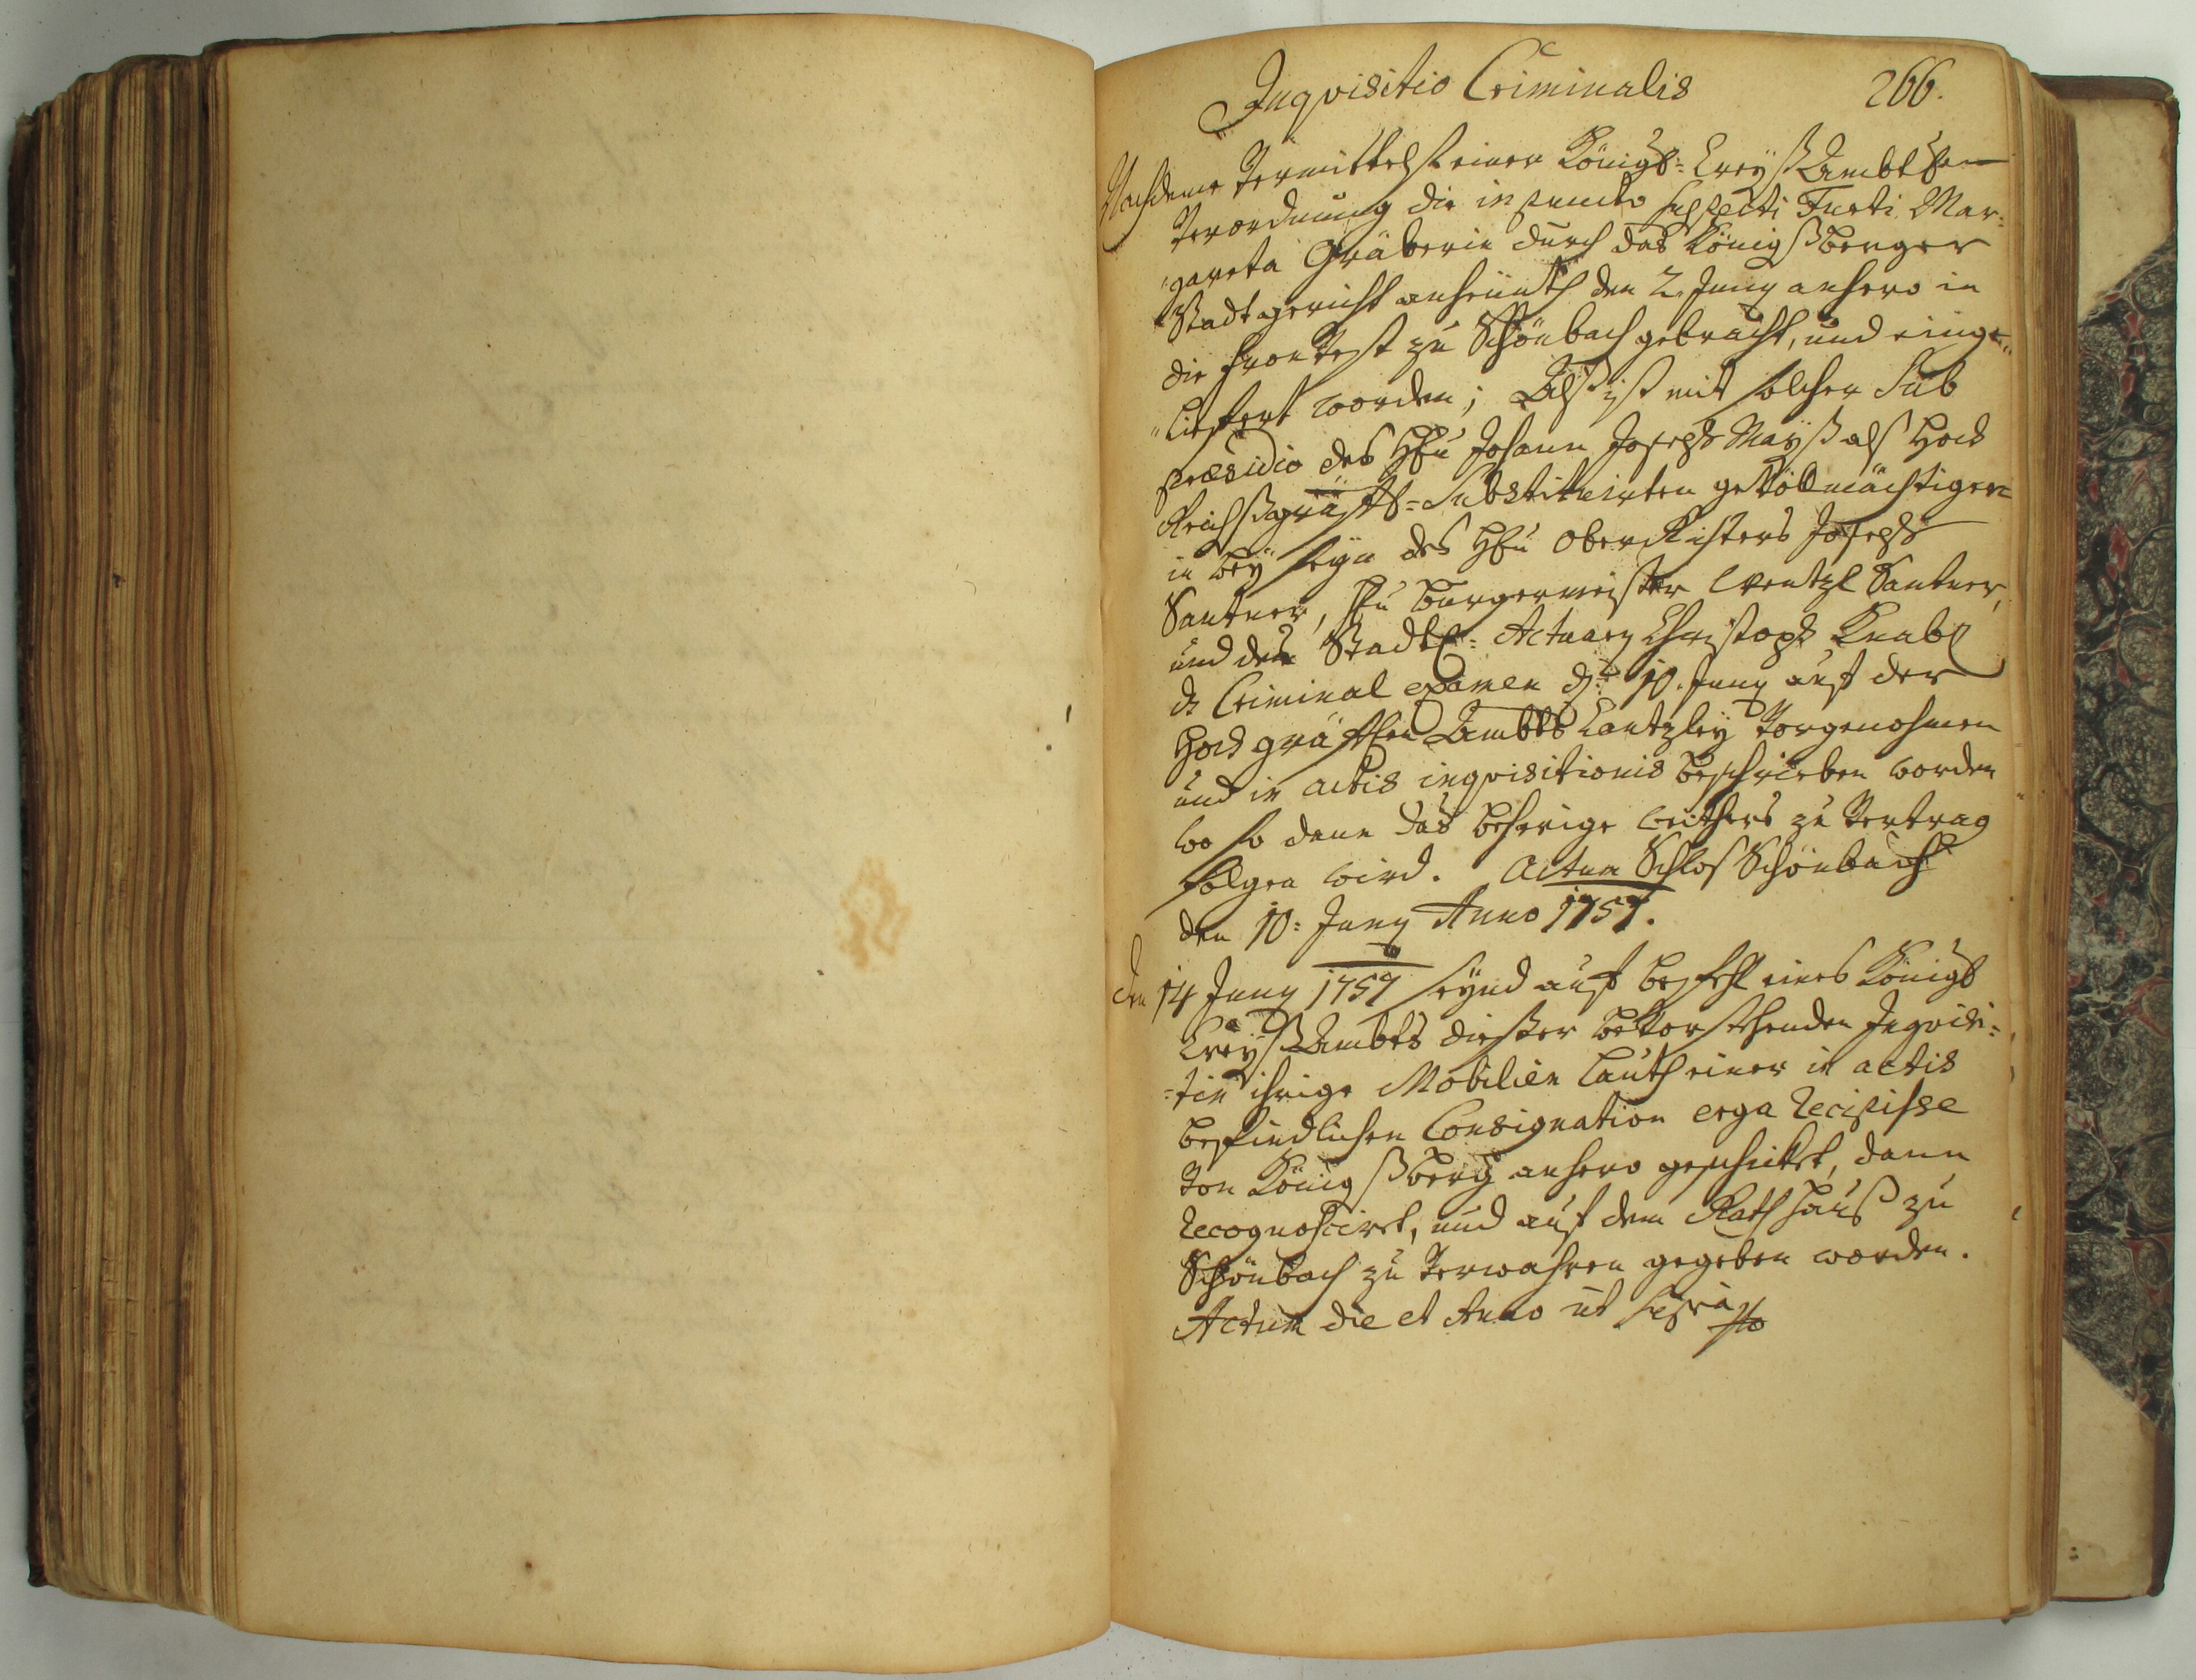 Inqvisitio Criminalis 266.
Nachdeme vermittelst einer Königl: Creyß Ambtlichen
Verordnung die in puncto suspecti Furti Mar:
"gareta Gräberin durch das Königßberger
Stadtgericht anheünth den 2. Juny anhero in
die Fronvest zu Schönbach gebracht, und einge"
"liefert worden; Alß ist mit solcher Sub
præsidio des Hℓn Johann Joseph Mayß alß Hoch
Reichßgräffl: Substituirten gevollmächtigen
in bey seyn des Hℓn Ober Richters Joseph
Santner, Hℓn Burgermeister Wentzl Santner,
und des Stadt: Actuary Christoph Knabl
ds Criminal examen d: 10. Juny auf der
Hoch gräfflen Ambts Cantzley vorgenohmen
und in actis inqvisitionis beschrieben worden
wo so dann das behörige weithers zu Vertrag
folgen wird. Actum Schloß Schönbach
den 10: Juny Anno 1757.
den 14 Juny 1757 seynd auf befehl eines Königl
Creyß Ambts dießer bevorstehenden Inqvisi:
:tin ihrige Mobilien lauth einer in actis
befindlichen Consignation erga Recipisse
von Königßberg anhero geschickt, dann
recognosciret, und auf dem Rathhauß zu
Schönbach zu verwahren gegeben worden.
Actum die et Anno ut supra